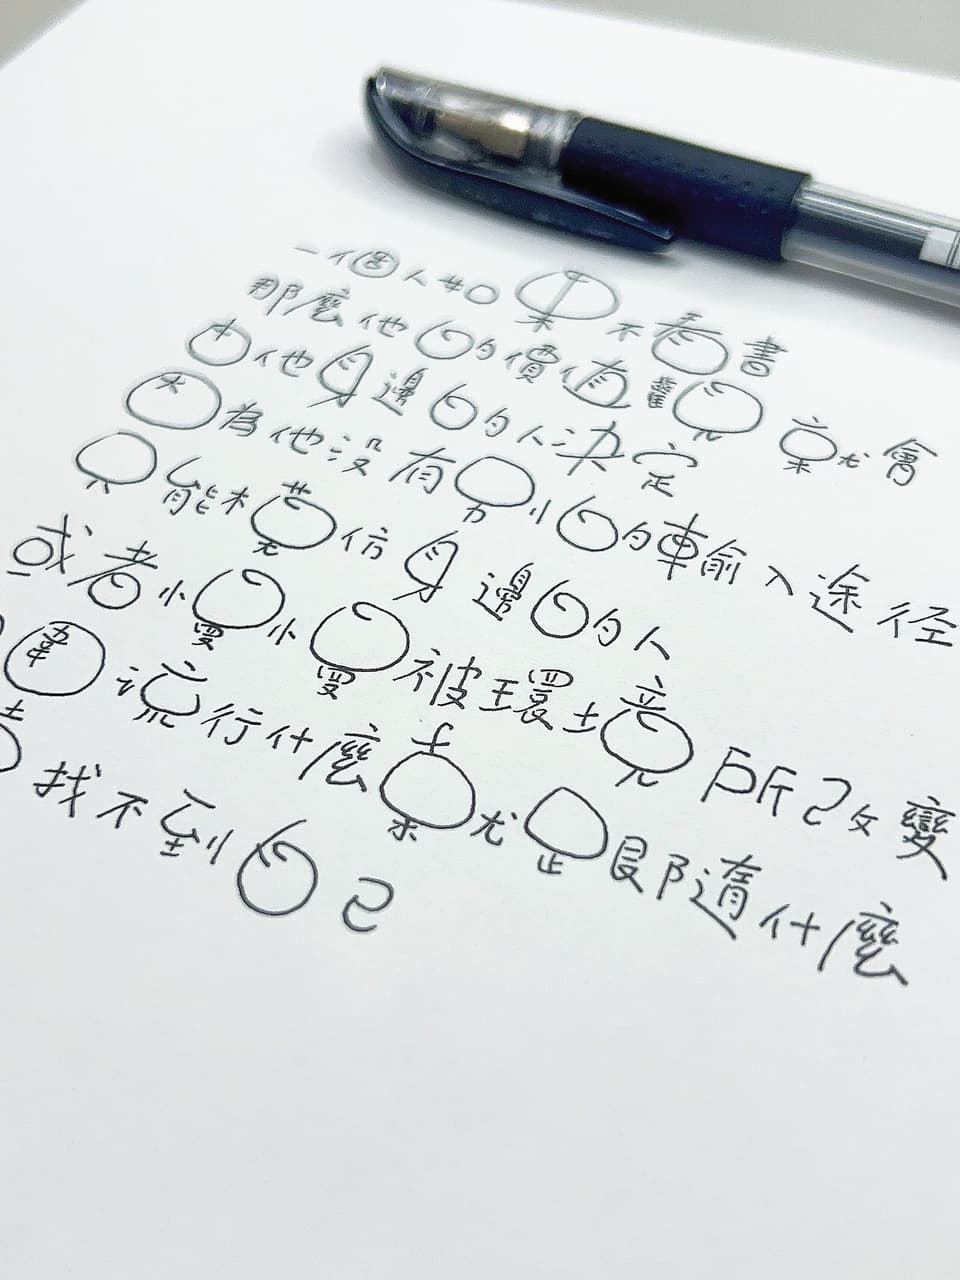 一個人如果不看書
那麼他的價值觀就會
由他身邊的人決定
因為他没有別的輸入途徑
只能模仿身邊的人
或者慢慢被環境所改變
圍流行什麼就是跟隨什麼
找不到自己